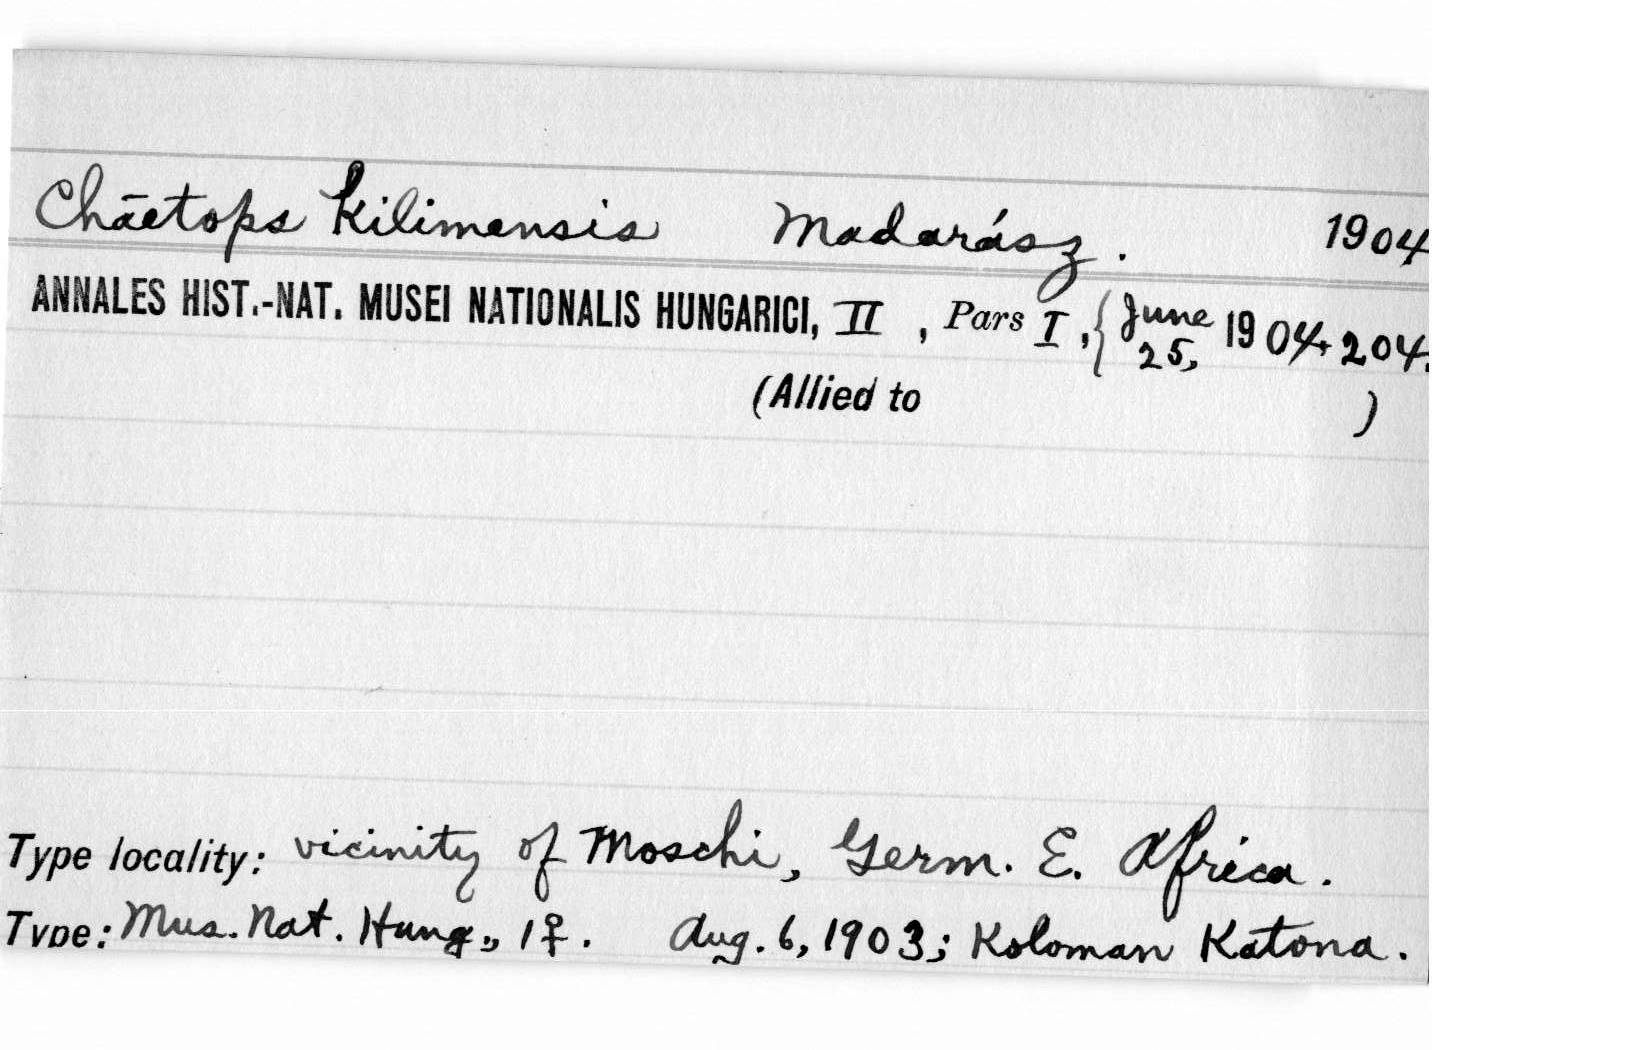 Chäetops Kilimensis Madarász. 1904
ANNALES HIST.-NAT. MUSEI NATIONALIS HUNGARICI, II , Pars I , { June 25, 1904, 204.
(Allied to )
Type locality: vicinity of Moschi, Germ. E. Africa.
Type: Mus. Nat. Hung., 1♀. Aug. 6, 1903; Koloman Katona.